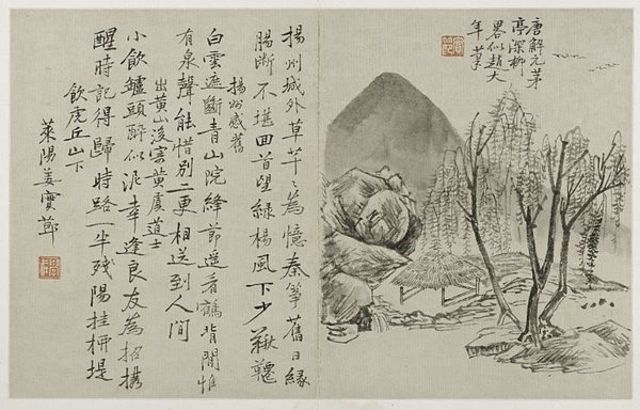 唐解元茅
亭深柳
畧似趙大
年筆
揚州城外草芊〻為憶秦箏舊日緣
腸斷不堪回首望綠楊風下少鞦韆
揚州感舊
白雲遮斷青山院絳節遙看鶴背閒惟
有泉聲能惜別二更相送到人間
出黃山後寄黃道士
小飲鑪頭醉似泥幸逢良友為招攜
醒時記得歸時路一半殘陽挂堤
飲虎丘山下
萊陽姜實節